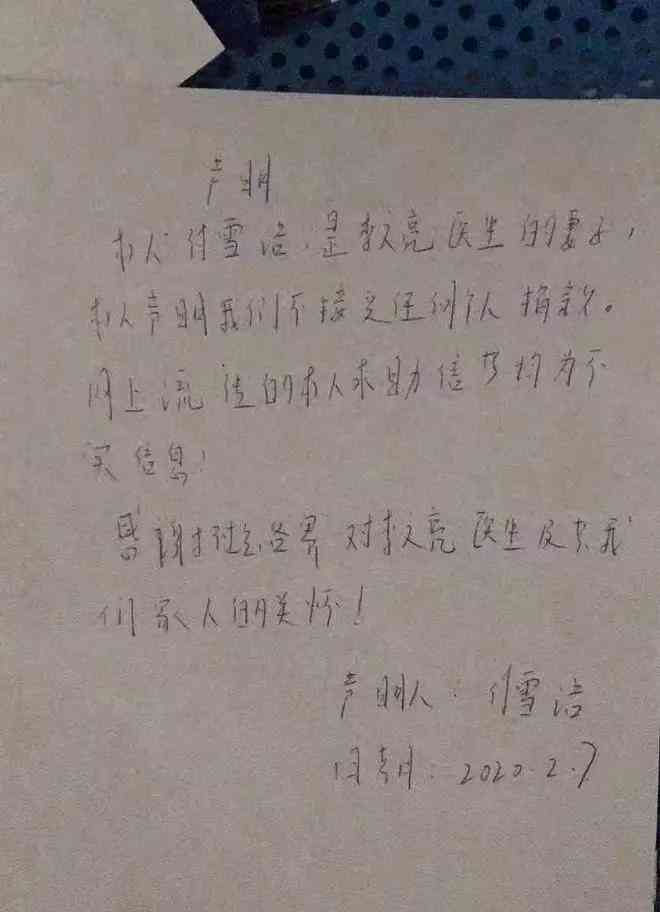 声明
本人付雪洁,是李文亮医生的妻子,
本人声明我们不接受任何个人捐款。
网上流传的本人求助信等均为不
实信息!
感谢社会各界对李文亮医生及其我
们家人的关怀!
声明人:付雪洁
日期:2020.2.7